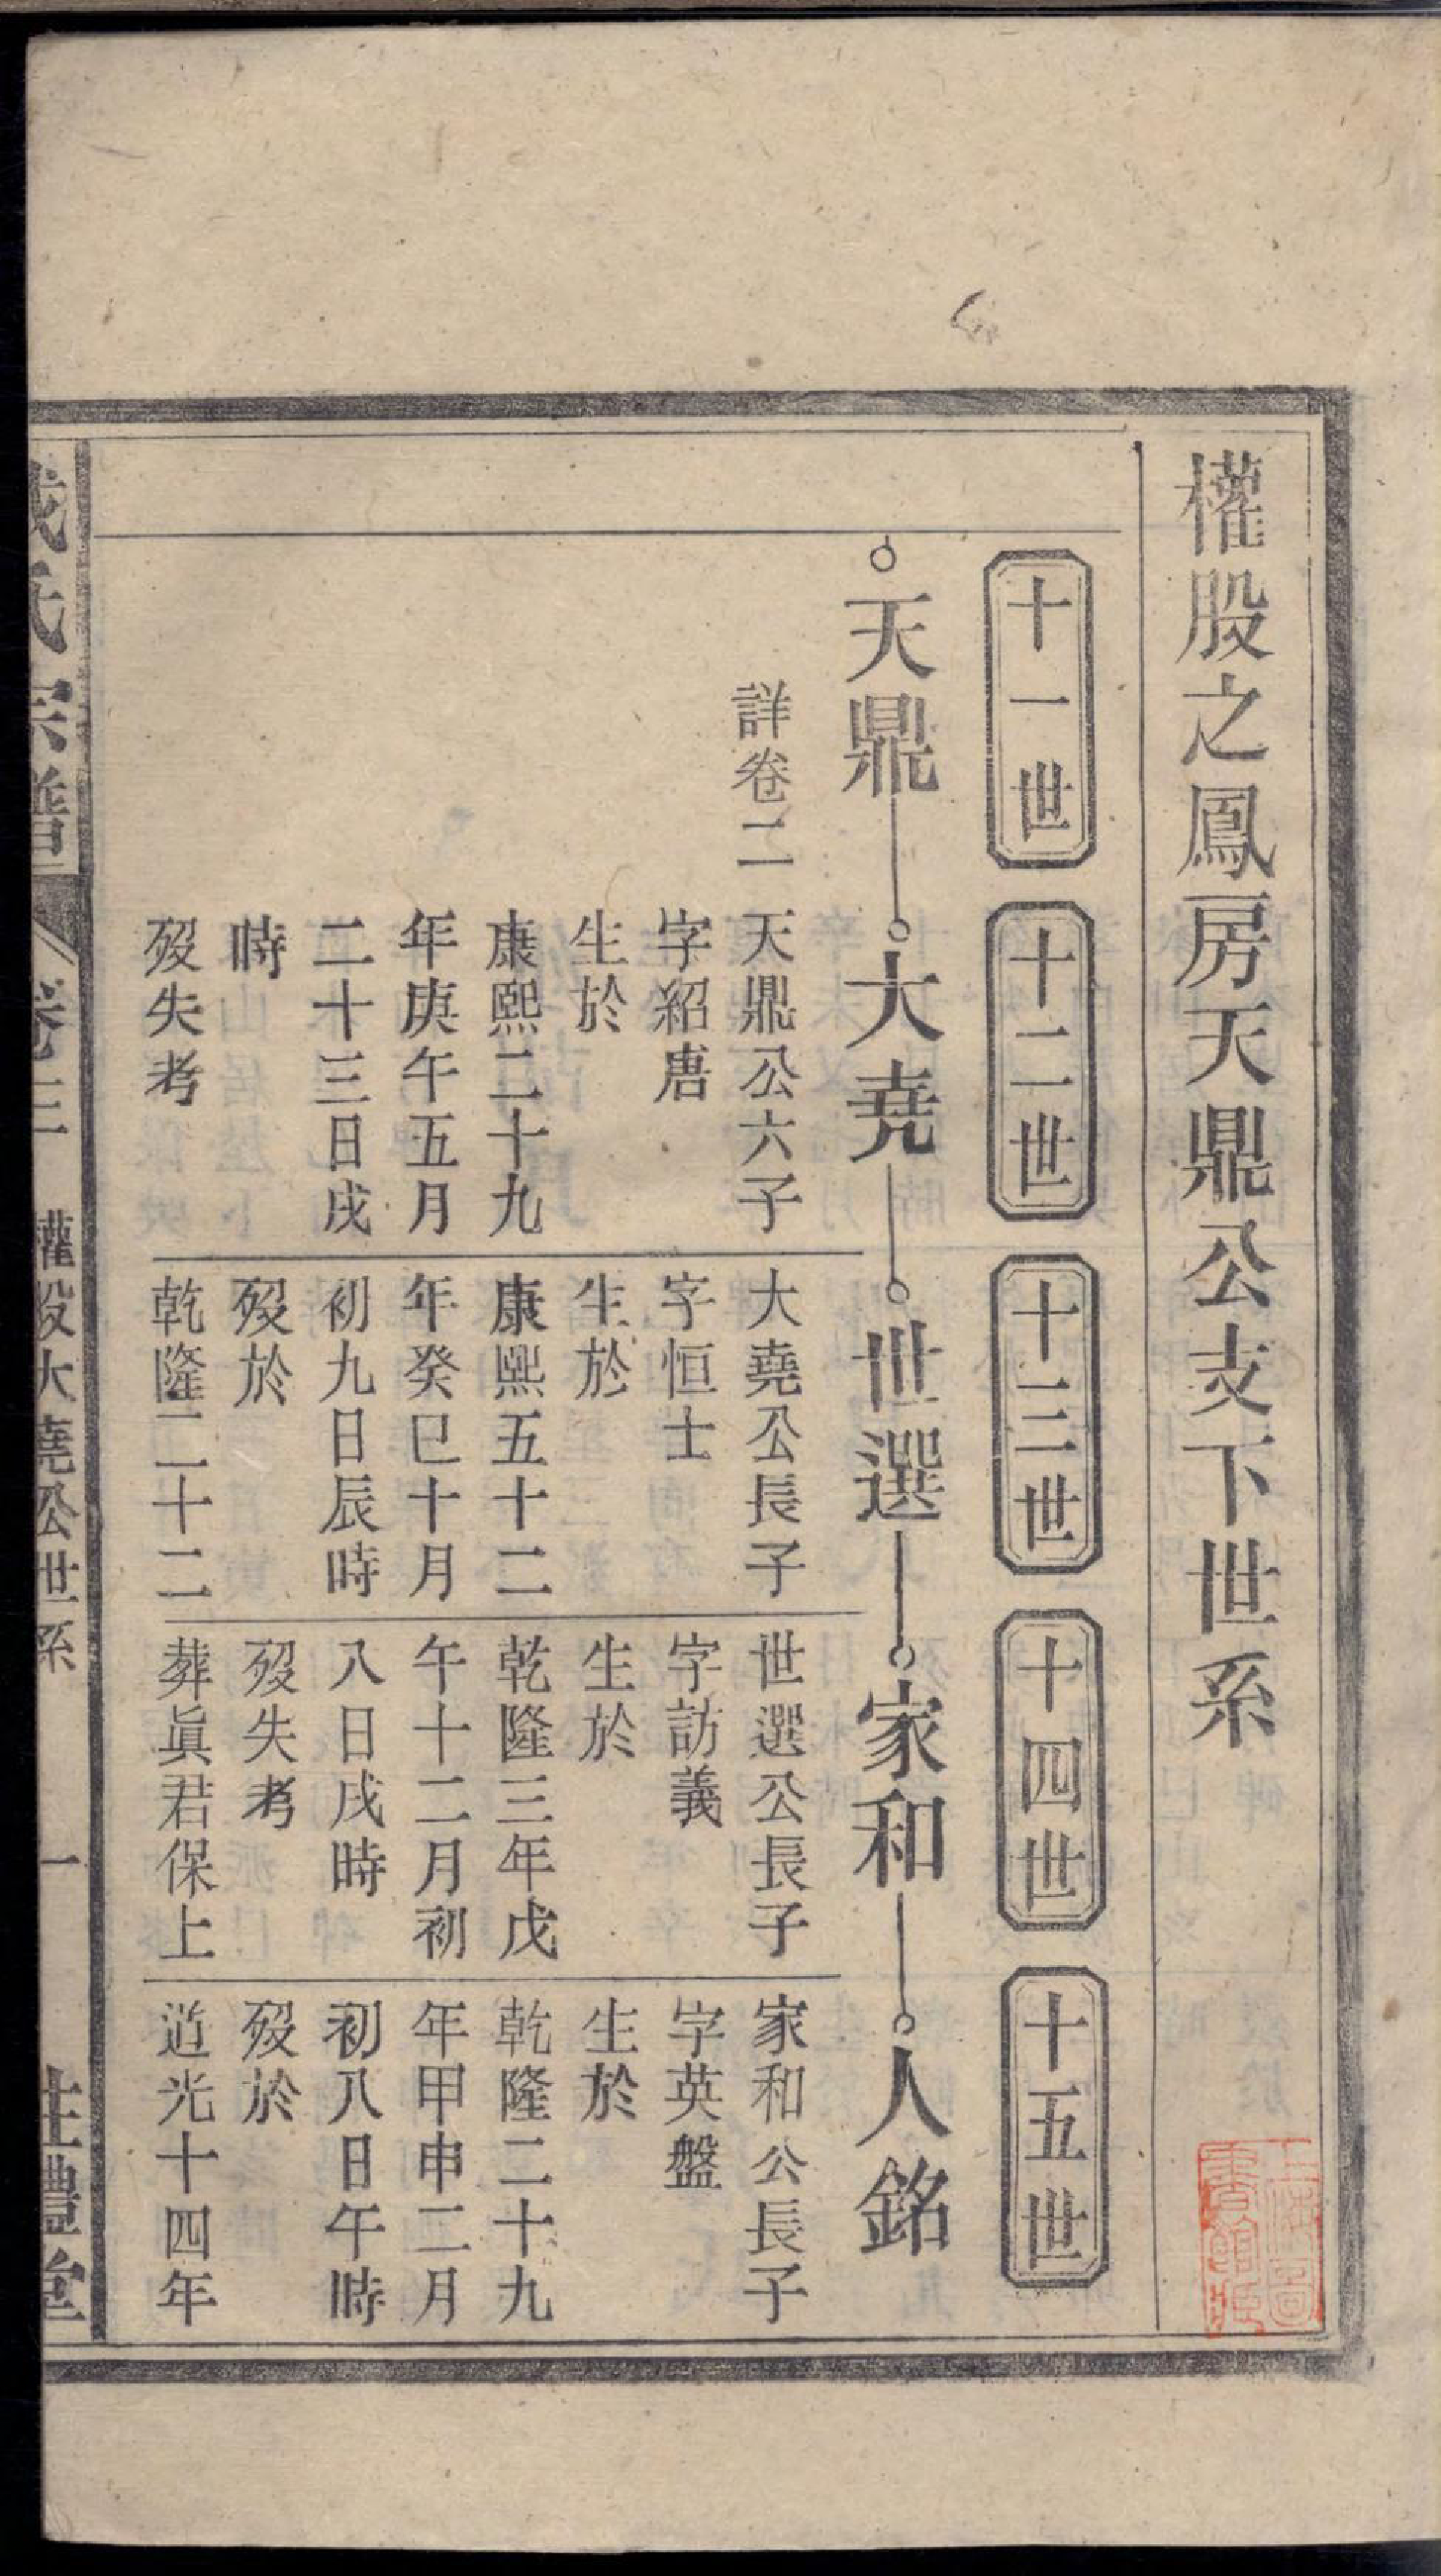 權股之鳳房天鼎公支下世系
十一世
十二世
十三世
十四世
十五世
天鼎
大堯
世選
家和
人銘
詳卷二
天鼎公六子
字紹唐
生於
康熙二十九
年庚午五月
二十三日戌
時
歿失考
大堯公長子
字恒士
生於
康熙五十二
年癸巳十月
初九日辰時
歿於
乾隆二十二
世選公長子
字訪義
生於
乾隆三年戊
午十二月初
八日戌時
歿失考
葬眞君保上
家和公長子
字英盤
生於
乾隆二十九
年甲申二月
初八日午時
歿於
道光十四年
氏宗譜
卷三
權股大堯公世系
一
禮堂
上海圖
書館藏